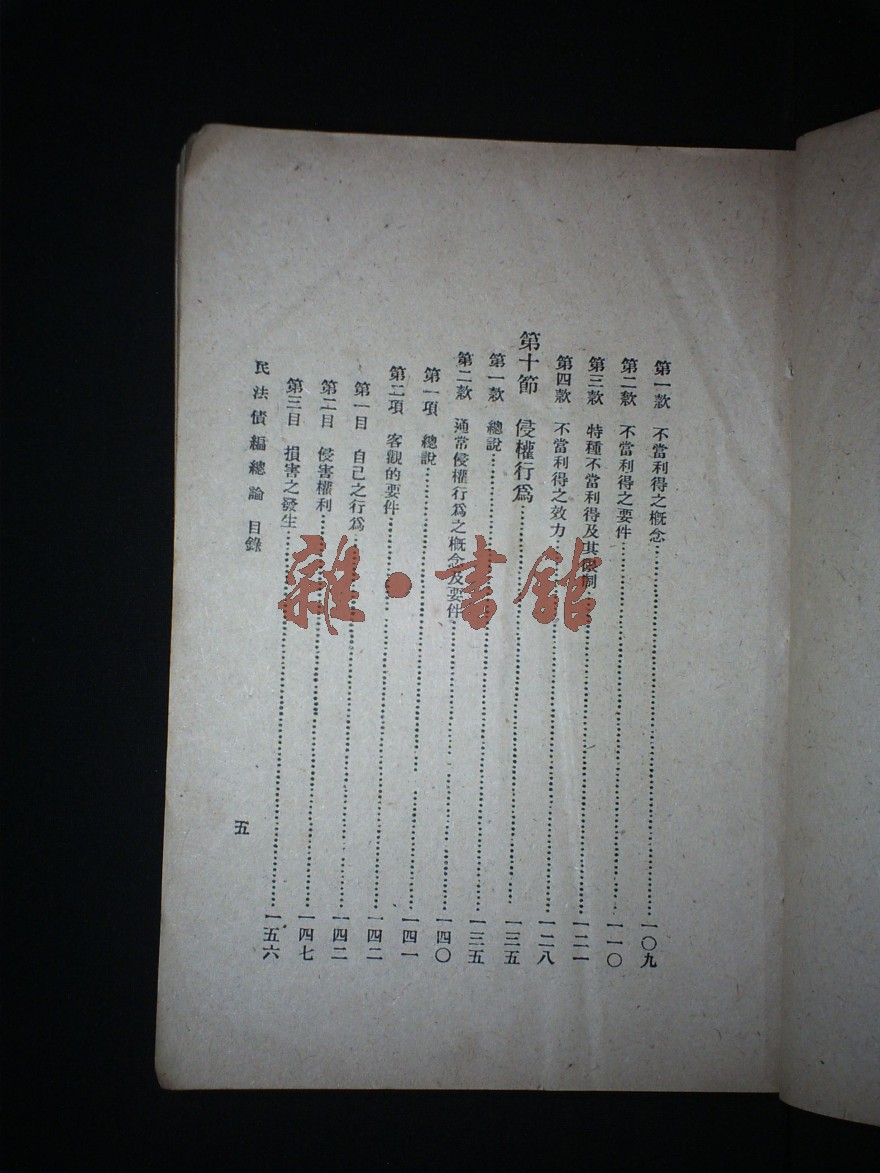 第一款　不當利得之概念……一〇九
第二款　不當利得之要件……一一〇
第三款　特種不當利得及其限制……一二一
第四款　不當利得之效力……一二八
第十節　侵權行爲……一三五
第一款　總說……一三五
第二款　通常侵權行爲之概念及要件……一四〇
第一項　總說……一四一
第二項　客觀的要件……一四二
第一目　自己之行爲……一四二
第二目　侵害權利……一四七
第三目　損害之發生……一五六
民法債編總論　目錄
五
雜·書館